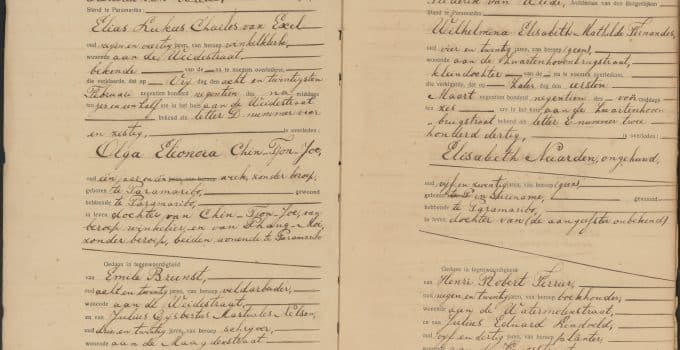 Stand te Paramaribo:
Elias Lukas Charles van Exel
oud negen en veertig jaren, van beroep winkelklerk,
wonende aan de Weidestraat
bekende van de na te noemen overledene,
die verklaarde, dat op Vrij dag den acht en twintigsten
Februari negentien honderd negentien des na middags
ten zes en een half ure in het huis aan de Weidestraat
bekend als letter D nummer vier
en zestig, is overleden:
Olga Elionora Chin-Tjon-Joe,
oud een jaar en week, zonder beroep,
geboren te Paramaribo, gewoond
hebbende te Paramaribo,
in leven dochter van Chin-Tjon-Joe, van
beroep winkelier, en van Phang-Moe,
zonder beroep, beiden wonende te Paramaribo
Gedaan in tegenwoordigheid
van Emile Brunst,
oud acht en twintig jaren, van beroep veldarbeider,
wonende aan de Weidestraat,
en van Julius Gijsbertus Martinales Nelson,
oud drie en twintig jaren, van beroep schrijver,
wonende aan de Maagdenstraat
Frederik van der Ambtenaar van den Burgerlijken
Stand te Paramaribo:
Wilhelmina Elisabeth Mathilde Fernandes,
oud vier en twintig jaren, van beroep (geen),
wonende aan de Zwartenhovenbrugstraat,
kleindochter van de na te noemen overledene,
die verklaarde, dat op Zater dag den eersten
Maart negentien honderd negentien des voor middags
ten zes ure in het huis aan de Zwartenhoven-
brugstraat bekend als letter E nummer twee
honderd dertig, is overleden:
Elisabeth Naarden, ongehuwd,
oud vijf en zeventig jaren, van beroep (geen)
geboren in Suriname, gewoond
hebbende te Paramaribo,
in leven dochter van (de aangeefster onbekend)
Gedaan in tegenwoordigheid
van Henri Robert Ferrier,
oud negen en twintig jaren, van beroep boekhouder,
wonende aan de Watermolenstraat,
en van Julius Eduard
oud vijf en dertig jaren, van beroep planter,
wonende aan de